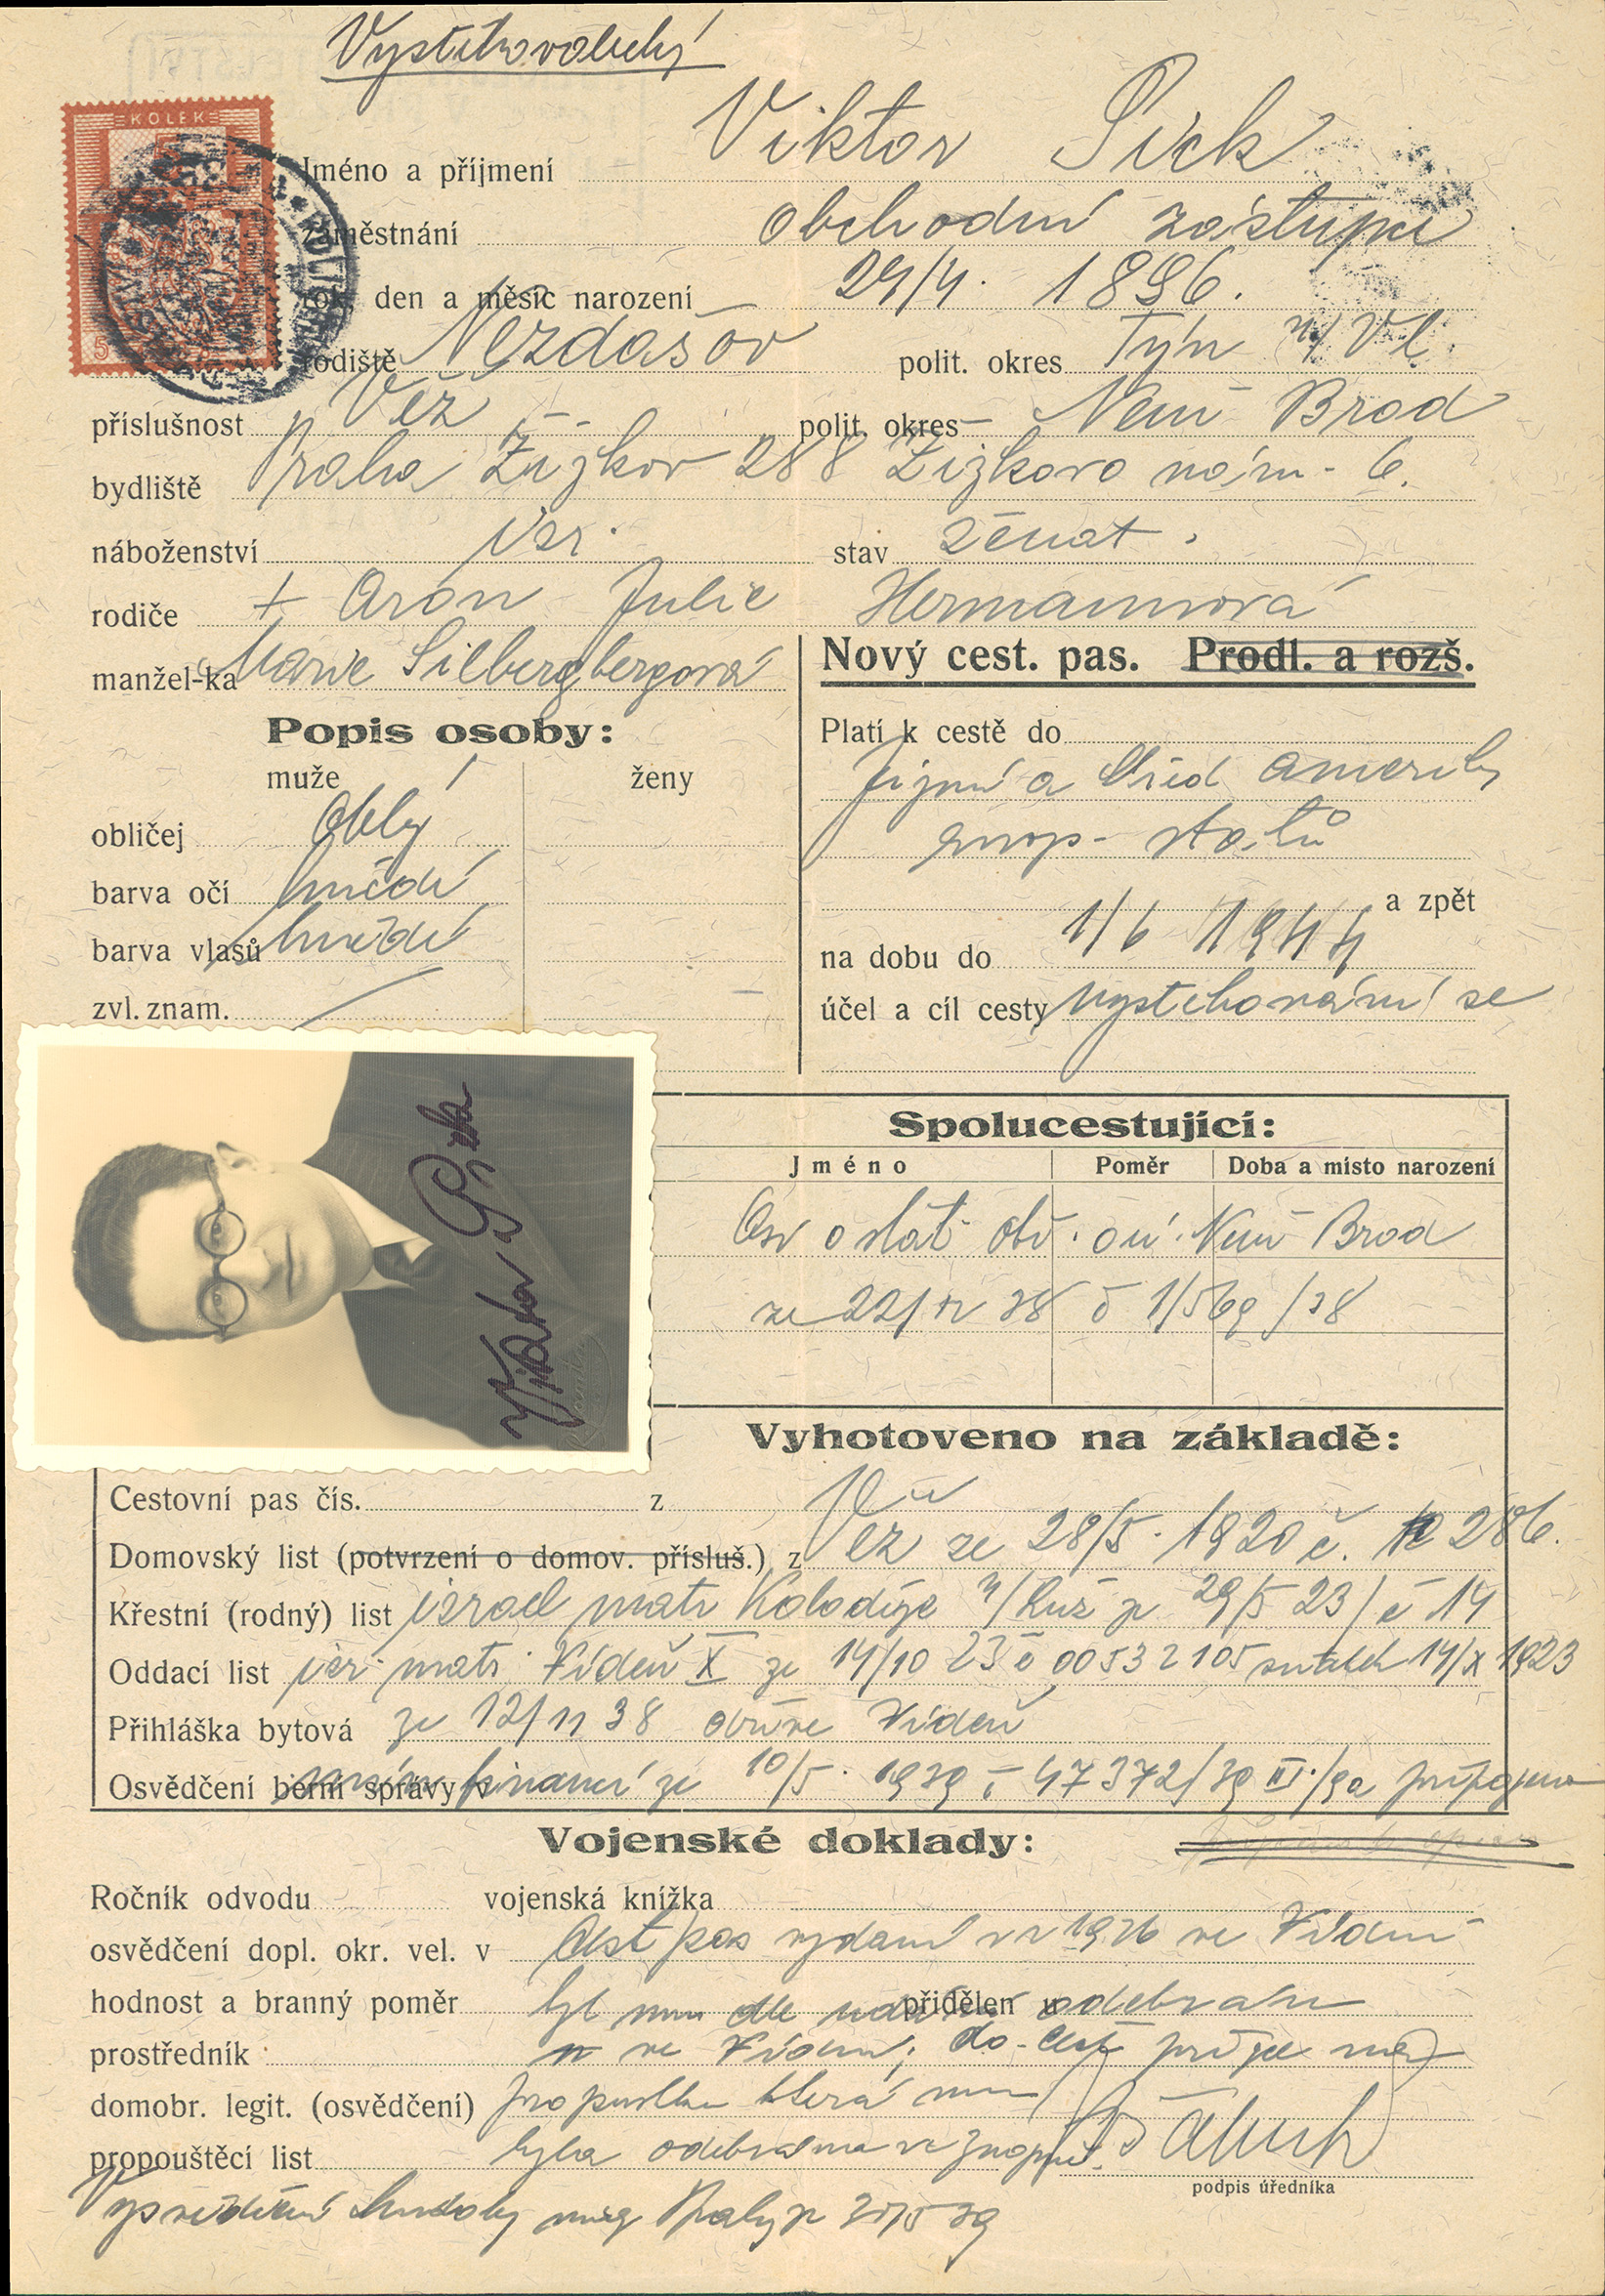 Vystěhovalecký
KOLEK
5
Viktor Pick
Jméno a příjmení
zaměstnání obchodní zástupce
rok, den a měsíc narození 29/4. 1896.
rodiště Nezdašov polit. okres Týn n/Vl.
příslušnost Věž polit. okres Něm Brod
bydliště Praha Žižkov 288 Žižkovo nám. 6.
náboženství isr. stav ženat.
rodiče + Aron Julie Hermannová
manžel-ka Marie Silbergbergová
Nový cest. pas. Prodl. a rozš.
Popis osoby:
muže ženy
obličej oblý
barva očí hnědé
barva vlasů hnědé
zvl. znam.
Platí k cestě do
Jižní a Střed Ameriky
evrop. států
a zpět
na dobu do 1/6 1944
účel a cíl cesty vystěhování se
Viktor Pick
Spolucestující:
Jméno Poměr Doba a místo narození
Osv o stát obč. Něm Brod
ze 22/ 38 č 1/569/38
Vyhotoveno na základě:
Cestovní pas čís. z
Domovský list (potvrzení o domov. přísluš.) z Věž ze 28/5. 1920 č. 286.
Křestní (rodný) list israel matr Koloděje n/Luž z 29/5 23/ č 14
Oddací list isr. matr. Vídeň X ze 14/10 23 č 00532105 sňatek 14/X 1923
Přihláška bytová ze 12/11 38 dříve Vídeň
Osvědčení berní správy v min financí ze 10/5. 1939 č 47372/39 III/9a připojeno
Vojenské doklady:
Ročník odvodu vojenská knížka
osvědčení dopl. okr. vel. v Cest pas vydaný v r 1926 ve Vídni
hodnost a branný poměr byl mu dle přidělen u odebrán
prostředník ve Vídni; do přijel na
domobr. legit. (osvědčení) propustku která mu
propouštěcí list byla odebrána ve
podpis úředníka
Vysvědčení mag Prahy z 5 39